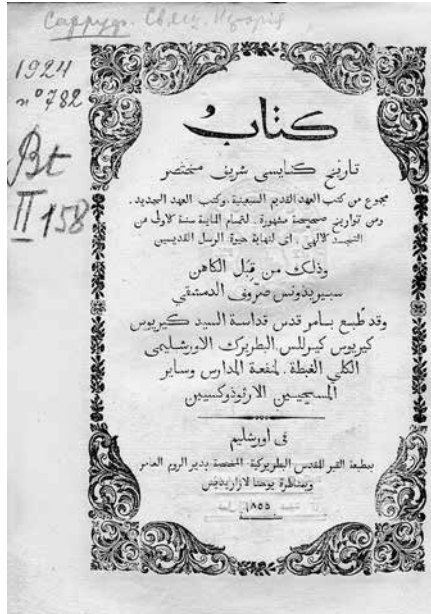 Сарруфъ. Свящ. Исторія
1924
nº 782
Bt
II 158
كتاب
تاريخ كنايسي شريف مختصر
مجموع من كتب العهد القديم السبعينية. وكتب العهد الجديد.
ومن تواريخ صحيحة مشهورة. لتمام الماية سنة الاولى من
التجسد الالهي. اى لنهاية حيوة الرسل القديسين
وذلك من قبل الكاهن
سبيريدونس صرّوفى الدمشقي
وقد طُبع بامر قدس قداسة السيد كيريوس
كيريوس كيرللس البطريرك الاورشليمى
الكلي الغبطة. لمنفعة المدارس وساير
المسيحيين الارثوذوكسيين
فى اورشليم
بمطبعة القبر المقدس البطريركية. المختصة بدير الروم العامر
وبمناظرة يوحنا لازاريديس
١٨٥٥